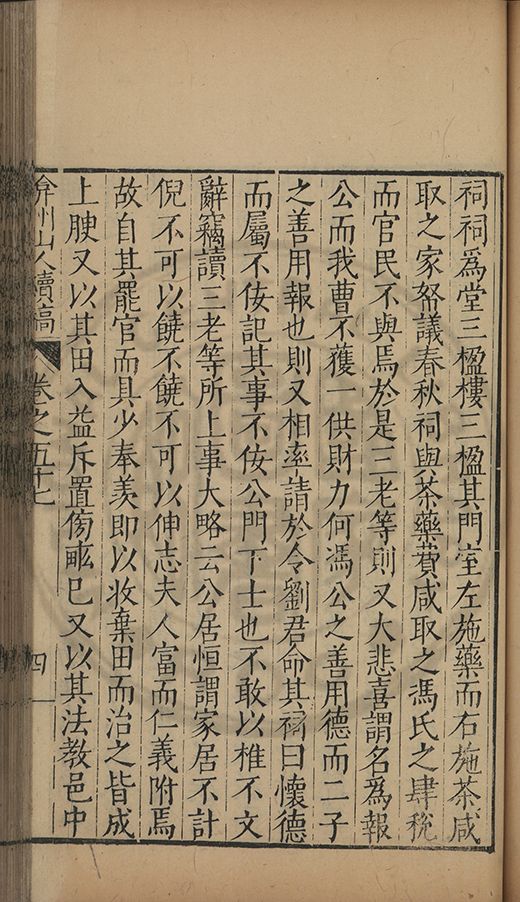 祠祠爲堂三楹樓三楹其門室左施藥而右施茶咸
取之家帑議春秋祠與茶藥費咸取之馮氏之肆稅
而官民不與焉於是三老等則又大悲喜謂名爲報
公而我曹不獲一供財力何馮公之善用德而二子
之善用報也則又相率請於令劉君命其祠曰懷德
而屬不佞記其事不佞公門下士也不敢以椎不文
辭竊讀三老等所上事大略云公居恒謂家居不計
倪不可以饒不饒不可以伸志夫人富而仁義附焉
故自其罷官而具少奉羨即以收棄田而治之皆成
上腴又以其田入益斥置傍畝巳又以其法教邑中
弇州山人續稿 卷之五十七 四